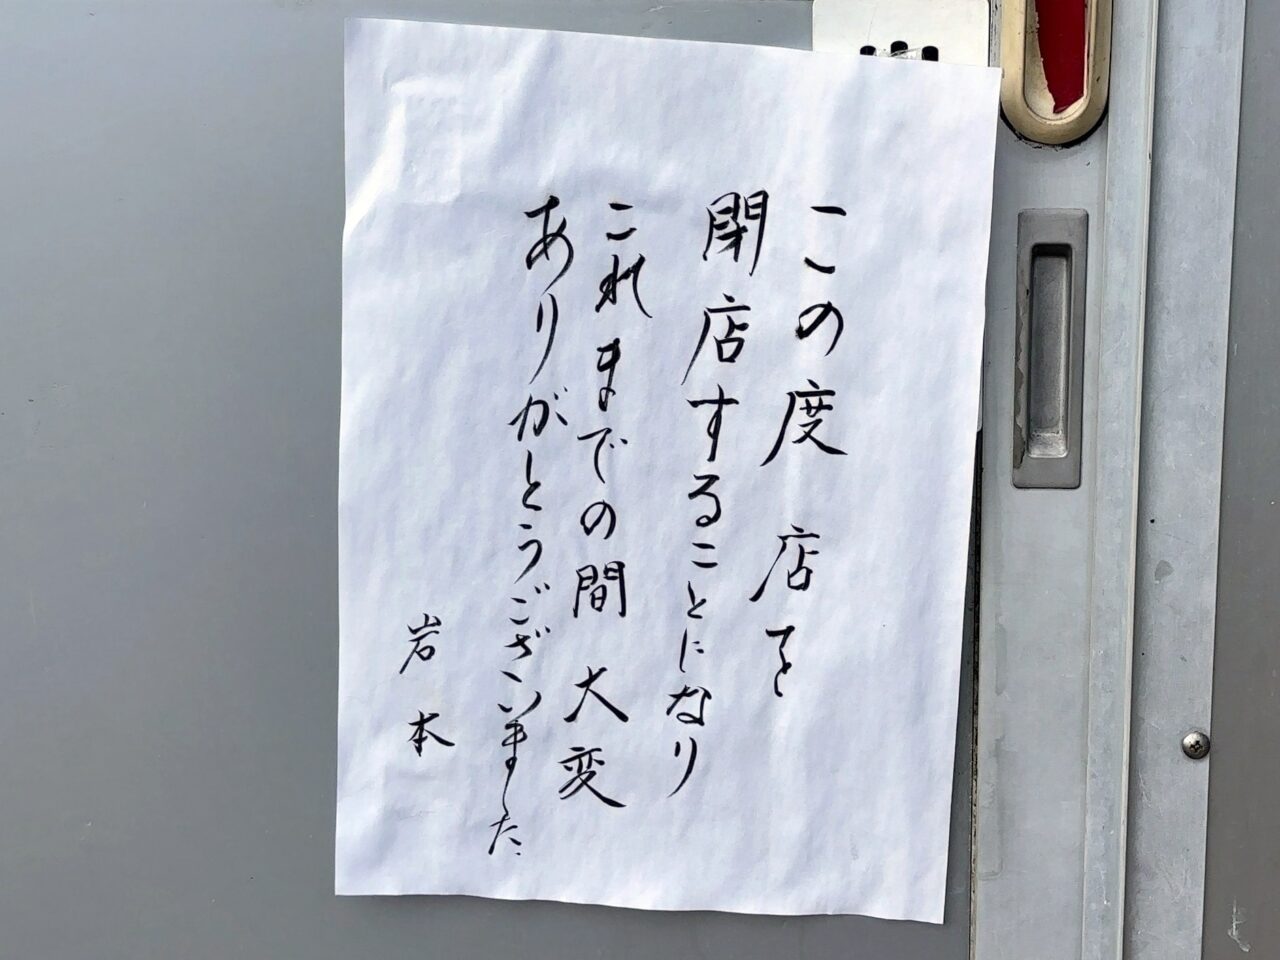 この度 店を
閉店することになり
これまでの間 大変
ありがとうございました
岩本